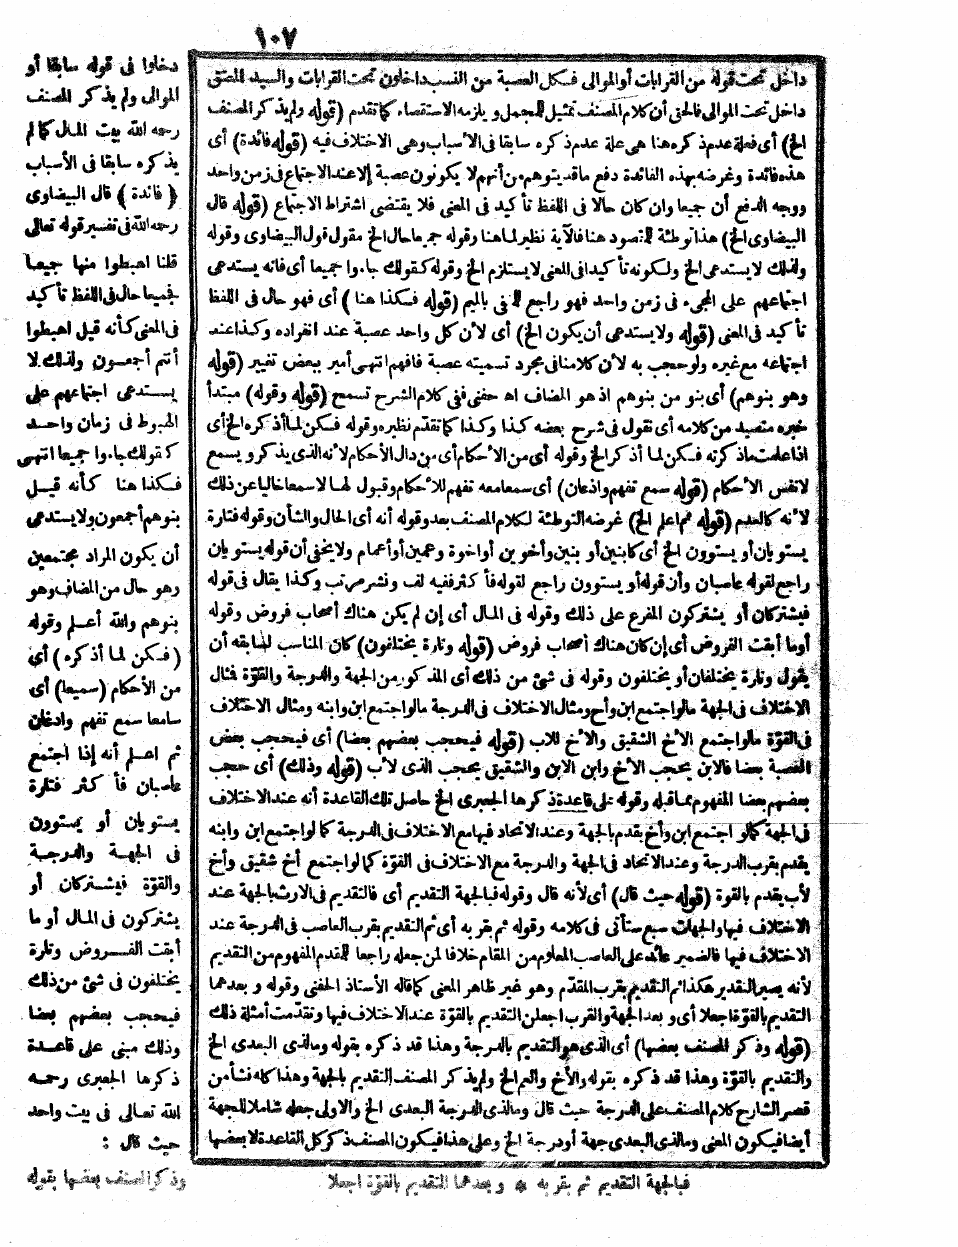 ١٠٧
داخل تحت قوله من القرابات أو الموالى فكل العصبة من النسب داخلون تحت القرابات والسيد المعتق
داخل تحت الموالى فالحق أن كلام المصنف تمثيل للمجمل ويلزمه الاستقصاء كما تقدم (قوله ولم يذكر المصنف
الخ) أى فعلة عدم ذكره هنا هى علة عدم ذكره سابقا فى الأسباب وهى الاختلاف فيه (قوله فائدة) أى
هذه فائدة وغرضه بهذه الفائدة دفع ما قد يتوهم من أنهم لا يكونون عصبة إلا عند الاجتماع فى زمن واحد
ووجه الدفع أن جميعا وان كان حالا فى اللفظ تأكيد فى المعنى فلا يقتضى اشتراط الاجتماع (قوله قال
البيضاوى الخ) هذا توطئة للمقصود هنا فالآية نظير لما هنا وقوله جميعا حال الخ مقول قول البيضاوى وقوله
ولذلك لا يستدعى الخ ولكونه تأكيدا فى المعنى لا يستلزم الخ وقوله كقولك جاءوا جميعا أى فانه يستدعى
اجتماعهم على المجىء فى زمن واحد فهو راجع للمنفى بالميم (قوله فكذا هنا) أى فهو حال فى اللفظ
تأكيد فى المعنى (قوله ولا يستدعى أن يكون الخ) أى لأن كل واحد عصبة عند انفراده وكذا عند
اجتماعه مع غيره ولو حجب به لأن كلامنا فى مجرد تسميته عصبة فافهم انتهى أمير ببعض تغيير (قوله
وهو بنوهم) أى بنو من بنوهم اذ هو المضاف اه حفنى ففى كلام الشرح تسمح (قوله وقوله) مبتدأ
خبره متصيد من كلامه أى نقول فى شرح بعضه كذا وكذا كما تقدّم نظيره وقوله فكن لما أذكره الخ أى
اذا علمت ما ذكرته فكن لما أذكر الخ وقوله أى من الأحكام أى من دال الأحكام لأنه الذى يذكر ويسمع
لا نفس الأحكام (قوله سمع تفهم واذعان) أى سمعا معه تفهم للأحكام وقبول لها لا سمعا خاليا عن ذلك
لأنه كالعدم (قوله ثم اعلم الخ) غرضه التوطئة لكلام المصنف بعد وقوله أنه أى الحال والشأن وقوله فتارة
يستويان أو يستوون الخ أى كابنين أو بنين وأخوين أو اخوة وعمين أو أعمام ولا يخفى أن قوله يستويان
راجع لقوله عاصبان وأن قوله أو يستوون راجع لقوله فأكثر ففيه لف ونشر مرتب وكذا يقال فى قوله
فيشتركان أو يشتركون المفرع على ذلك وقوله فى المال أى إن لم يكن هناك أصحاب فروض وقوله
أو ما أبقت الفروض أى إن كان هناك أصحاب فروض (قوله وتارة يختلفون) كان المناسب لسابقه أن
يقول وتارة يختلفان أو يختلفون وقوله فى شئ من ذلك أى المذكور من الجهة والدرجة والقوّة فمثال
الاختلاف فى الجهة ما لو اجتمع ابن وأخ ومثال الاختلاف فى الدرجة ما لو اجتمع ابن وابنه ومثال الاختلاف
فى القوّة ما لو اجتمع الأخ الشقيق والأخ للاب (قوله فيحجب بعضهم بعضا) أى فيحجب بعض
العصبة بعضا فالابن يحجب الأخ وابن الابن والشقيق يحجب الذى لأب (قوله وذلك) أى حجب
بعضهم بعضا المفهوم مما قبله وقوله على قاعدة ذكرها الجعبرى الخ حاصل تلك القاعدة أنه عند الاختلاف
فى الجهة كما لو اجتمع ابن وأخ يقدم بالجهة وعند الاتحاد فيها مع الاختلاف فى الدرجة كما لو اجتمع ابن وابنه
يقدم بقرب الدرجة وعند الاتحاد فى الجهة والدرجة مع الاختلاف فى القوّة كما لو اجتمع أخ شقيق وأخ
لأب يقدم بالقوة (قوله حيث قال) أى لأنه قال وقوله فبالجهة التقديم أى فالتقديم فى الارث بالجهة عند
الاختلاف فيها والجهات سبع ستأتى فى كلامه وقوله ثم بقربه أى ثم التقديم بقرب العاصب فى الدرجة عند
الاختلاف فيها فالضمير عائد على العاصب المعلوم من المقام خلافا لمن جعله راجعا للمقدم المفهوم من التقديم
لأنه يصير التقدير هكذا ثم التقديم بقرب المقدّم وهو غير ظاهر المعنى كما قاله الأستاذ الحفنى وقوله وبعدهما
التقديم بالقوّة اجعلا أى وبعد الجهة والقرب اجعلن التقديم بالقوّة عند الاختلاف فيها وتقدّمت أمثلة ذلك
(قوله وذكر المصنف بعضها) أى الذى هو التقديم بالدرجة وهذا قد ذكره بقوله وما لذى البعدى الخ
والتقديم بالقوّة وهذا قد ذكره بقوله والأخ والعم الخ ولم يذكر المصنف التقديم بالجهة وهذا كله نشأ من
قصر الشارح كلام المصنف على الدرجة حيث قال وما لذى الدرجة البعدى الخ والاولى جعله شاملا للجهة
أيضا فيكون المعنى وما لذى البعدى جهة أو درجة الخ وعلى هذا فيكون المصنف ذكر كل القاعدة لا بعضها
دخلوا فى قوله سابقا أو
الموالى ولم يذكر المصنف
رحمه الله بيت المال كما لم
يذكره سابقا فى الأسباب
(فائدة) قال البيضاوى
رحمه الله فى تفسير قوله تعالى
قلنا اهبطوا منها جميعا
فجميعا حال فى اللفظ تأكيد
فى المعنى كأنه قيل اهبطوا
أنتم أجمعون ولذلك لا
يستدعى اجتماعهم على
الهبوط فى زمان واحد
كقولك جاءوا جميعا انتهى
فكذا هنا كأنه قيل
بنوهم أجمعون ولا يستدعى
أن يكون المراد مجتمعين
وهو حال من المضاف وهو
بنوهم والله أعلم وقوله
(فكن لما أذكره) أى
من الأحكام (سميعا) أى
سامعا سمع تفهم واذعان
ثم اعلم أنه إذا اجتمع
عاصبان فأكثر فتارة
يستويان أو يستوون
فى الجهة والدرجة
والقوّة فيشتركان أو
يشتركون فى المال أو ما
أبقت الفروض وتارة
يختلفون فى شئ من ذلك
فيحجب بعضهم بعضا
وذلك مبنى على قاعدة
ذكرها الجعبرى رحمه
الله تعالى فى بيت واحد
حيث قال :
فبالجهة التقديم ثم بقربه * وبعدهما التقديم بالقوّة اجعلا
وذكر المصنف بعضها بقوله